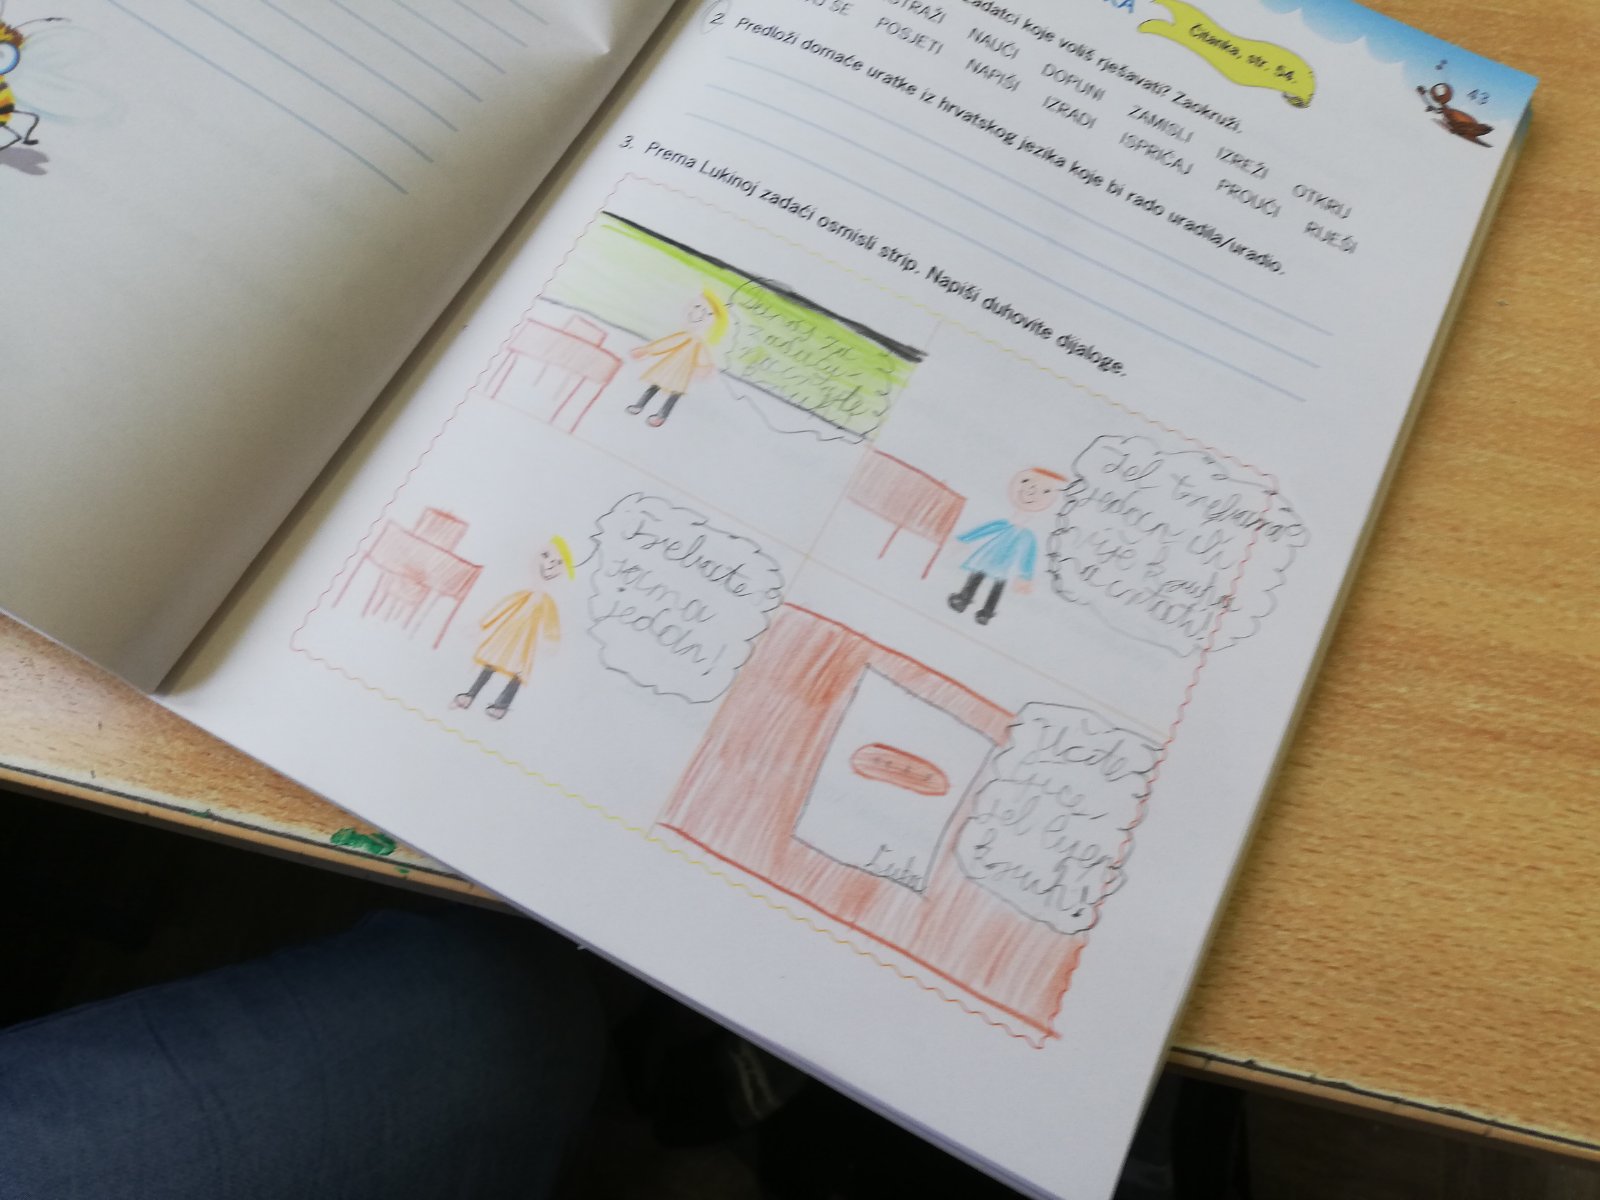 43
Čitanka, str. 54.
zadatci koje voliš rješavati? Zaokruži.
NAUČI DOPUNI ZAMISLI IZREŽI OTKRIJ
POSJETI NAPIŠI IZRADI ISPRIČAJ PROUČI RIJEŠI
2. Predloži domaće uratke iz hrvatskog jezika koje bi rado uradila/uradio.
3. Prema Lukinoj zadaći osmisli strip. Napiši duhovite dijaloge.
za
nacrtajte
kruh
Jel trebamo
jedan ili
više kruha
nacrtati!
Trebate
samo
jedan!
jel lijep
kruh!
Luka